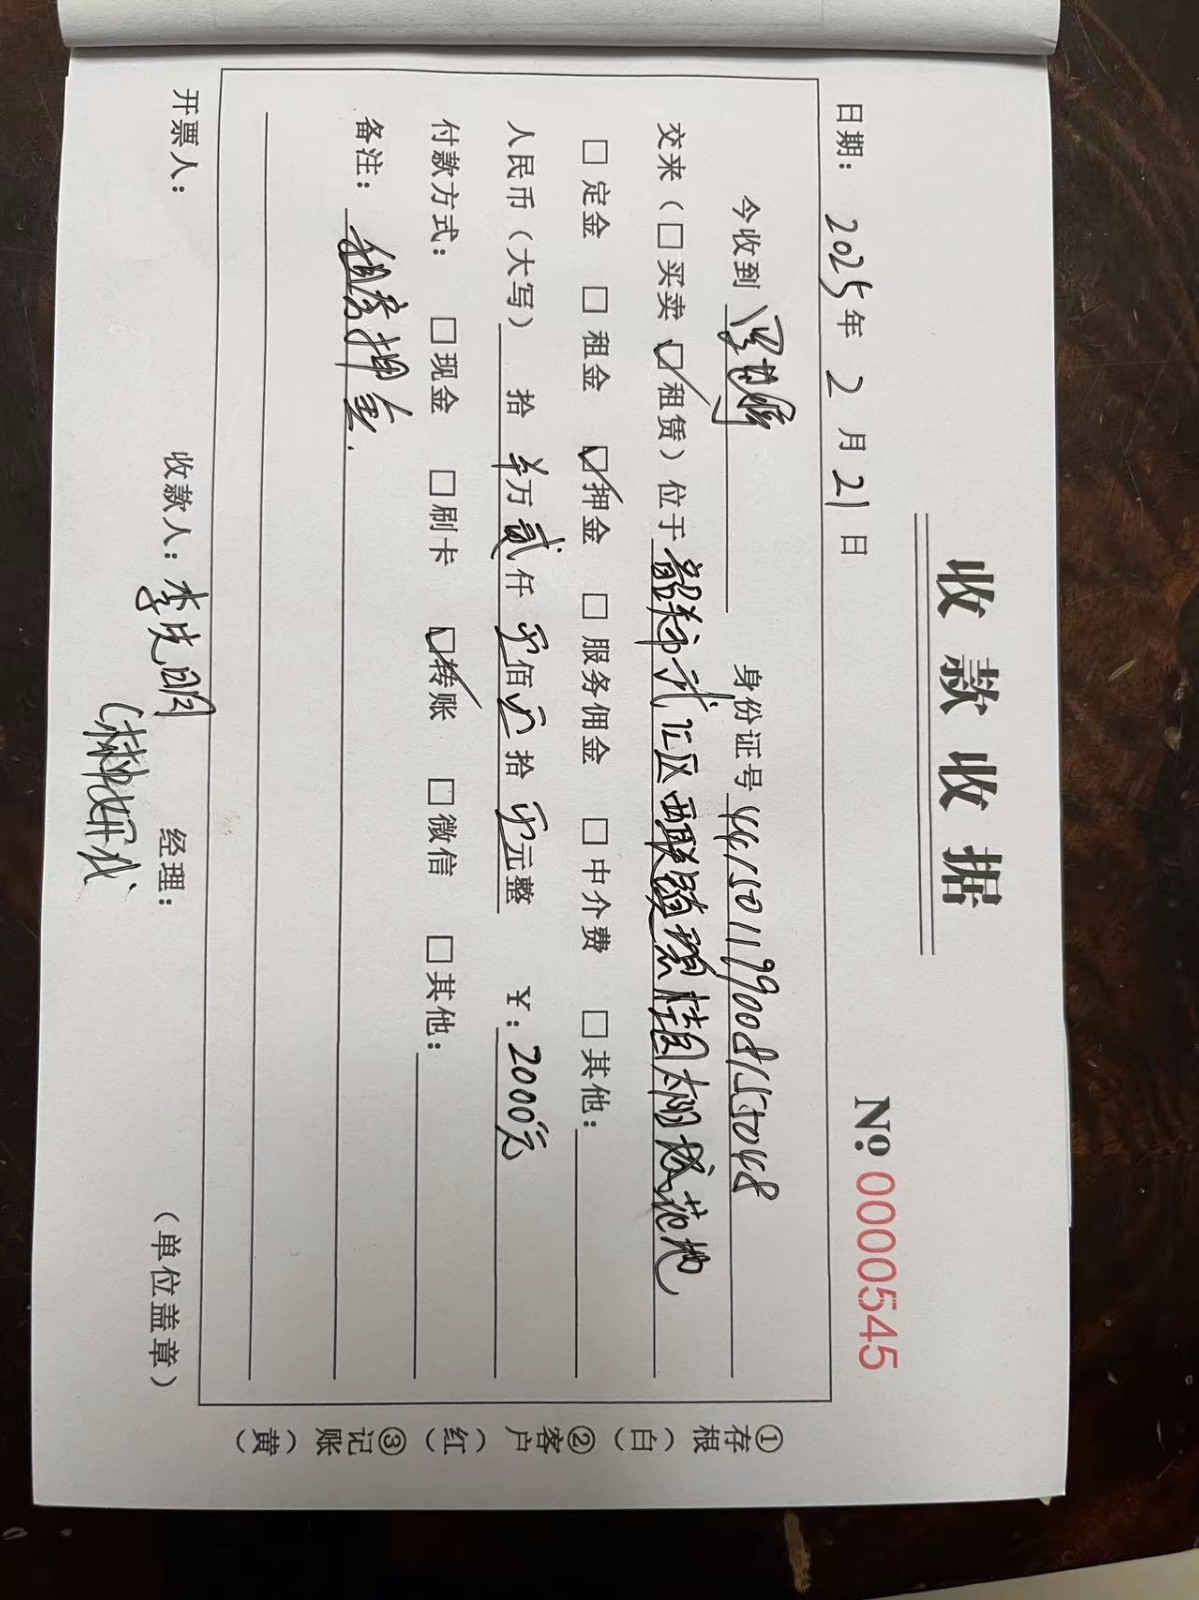 收款收据
No 0000545
日期：2025年2月21日
今收到 身份证号 441501199008155048
交来（□买卖 ☑租赁）位于韶关市武江区西联镇碧桂园太阳城花地
□定金 □租金 ☑押金 □服务佣金 □中介费 □其他：
人民币（大写） 拾 万贰仟零佰零拾零元整 ¥：2000元
付款方式： □现金 □刷卡 ☑转账 □微信 □其他：
备注：租房押金.
开票人： 收款人：李先明 经理： （单位盖章）
①存根（白）②客户（红）③记账（黄）